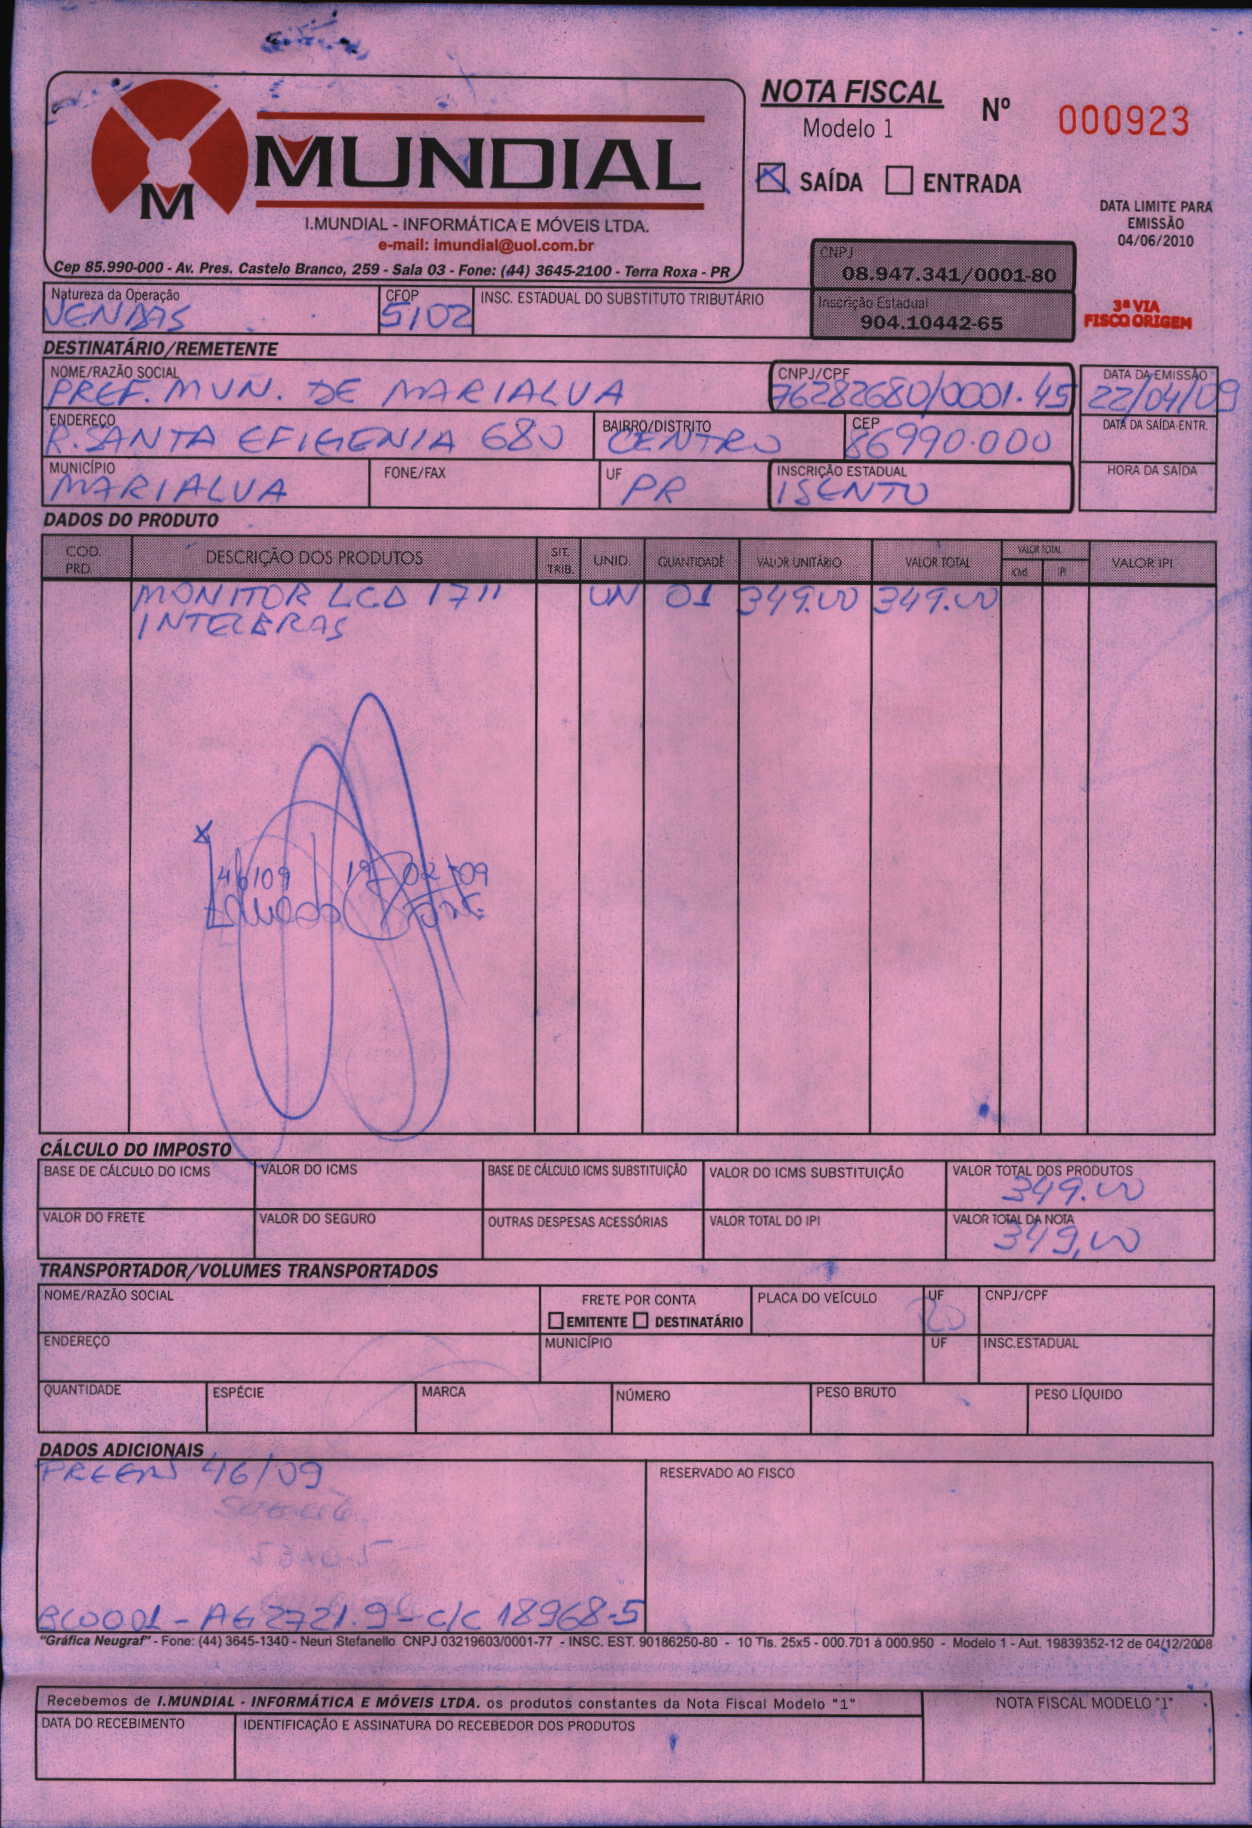 NOTA FISCAL
Nº 000923
Modelo 1
M
MUNDIAL
SAÍDA ENTRADA
I.MUNDIAL - INFORMÁTICA E MÓVEIS LTDA.
e-mail: imundial@uol.com.br
Cep 85.990-000 - Av. Pres. Castelo Branco, 259 - Sala 03 - Fone: (44) 3645-2100 - Terra Roxa - PR
DATA LIMITE PARA
EMISSÃO
04/06/2010
CNPJ
08.947.341/0001-80
Natureza da Operação CFOP INSC. ESTADUAL DO SUBSTITUTO TRIBUTÁRIO Inscrição Estadual
VENDAS 5102 904.10442-65
3ª VIA
FISCO ORIGEM
DESTINATÁRIO/REMETENTE
NOME/RAZÃO SOCIAL CNPJ/CPF DATA DA EMISSÃO
PREF. MUN. DE MARIALVA 76282680/0001.45 22/04/09
ENDEREÇO BAIRRO/DISTRITO CEP DATA DA SAÍDA-ENTR.
R. SANTA EFIGENIA 680 CENTRO 86990.000
MUNICÍPIO FONE/FAX UF INSCRIÇÃO ESTADUAL HORA DA SAÍDA
MARIALVA PR ISENTO
DADOS DO PRODUTO
COD. PRD. DESCRIÇÃO DOS PRODUTOS SIT. TRIB. UNID. QUANTIDADE VALOR UNITÁRIO VALOR TOTAL VALOR TOTAL ICMS IPI VALOR IPI
MONITOR LCD 17" UN 01 349.00 349.00
INTELBRAS
x
CÁLCULO DO IMPOSTO
BASE DE CÁLCULO DO ICMS VALOR DO ICMS BASE DE CÁLCULO ICMS SUBSTITUIÇÃO VALOR DO ICMS SUBSTITUIÇÃO VALOR TOTAL DOS PRODUTOS
349.00
VALOR DO FRETE VALOR DO SEGURO OUTRAS DESPESAS ACESSÓRIAS VALOR TOTAL DO IPI VALOR TOTAL DA NOTA
349,00
TRANSPORTADOR/VOLUMES TRANSPORTADOS
NOME/RAZÃO SOCIAL FRETE POR CONTA PLACA DO VEÍCULO UF CNPJ/CPF
EMITENTE DESTINATÁRIO
ENDEREÇO MUNICÍPIO UF INSC.ESTADUAL
QUANTIDADE ESPÉCIE MARCA NÚMERO PESO BRUTO PESO LÍQUIDO
DADOS ADICIONAIS
46/09
RESERVADO AO FISCO
BCO001 - AG 2721.9 - C/C 18968-5
"Gráfica Neugraf" - Fone: (44) 3645-1340 - Neuri Stefanello CNPJ 03219603/0001-77 - INSC. EST. 90186250-80 - 10 Tls. 25x5 - 000.701 à 000.950 - Modelo 1 - Aut. 19839352-12 de 04/12/2008
Recebemos de I.MUNDIAL - INFORMÁTICA E MÓVEIS LTDA. os produtos constantes da Nota Fiscal Modelo "1" NOTA FISCAL MODELO "1"
DATA DO RECEBIMENTO IDENTIFICAÇÃO E ASSINATURA DO RECEBEDOR DOS PRODUTOS